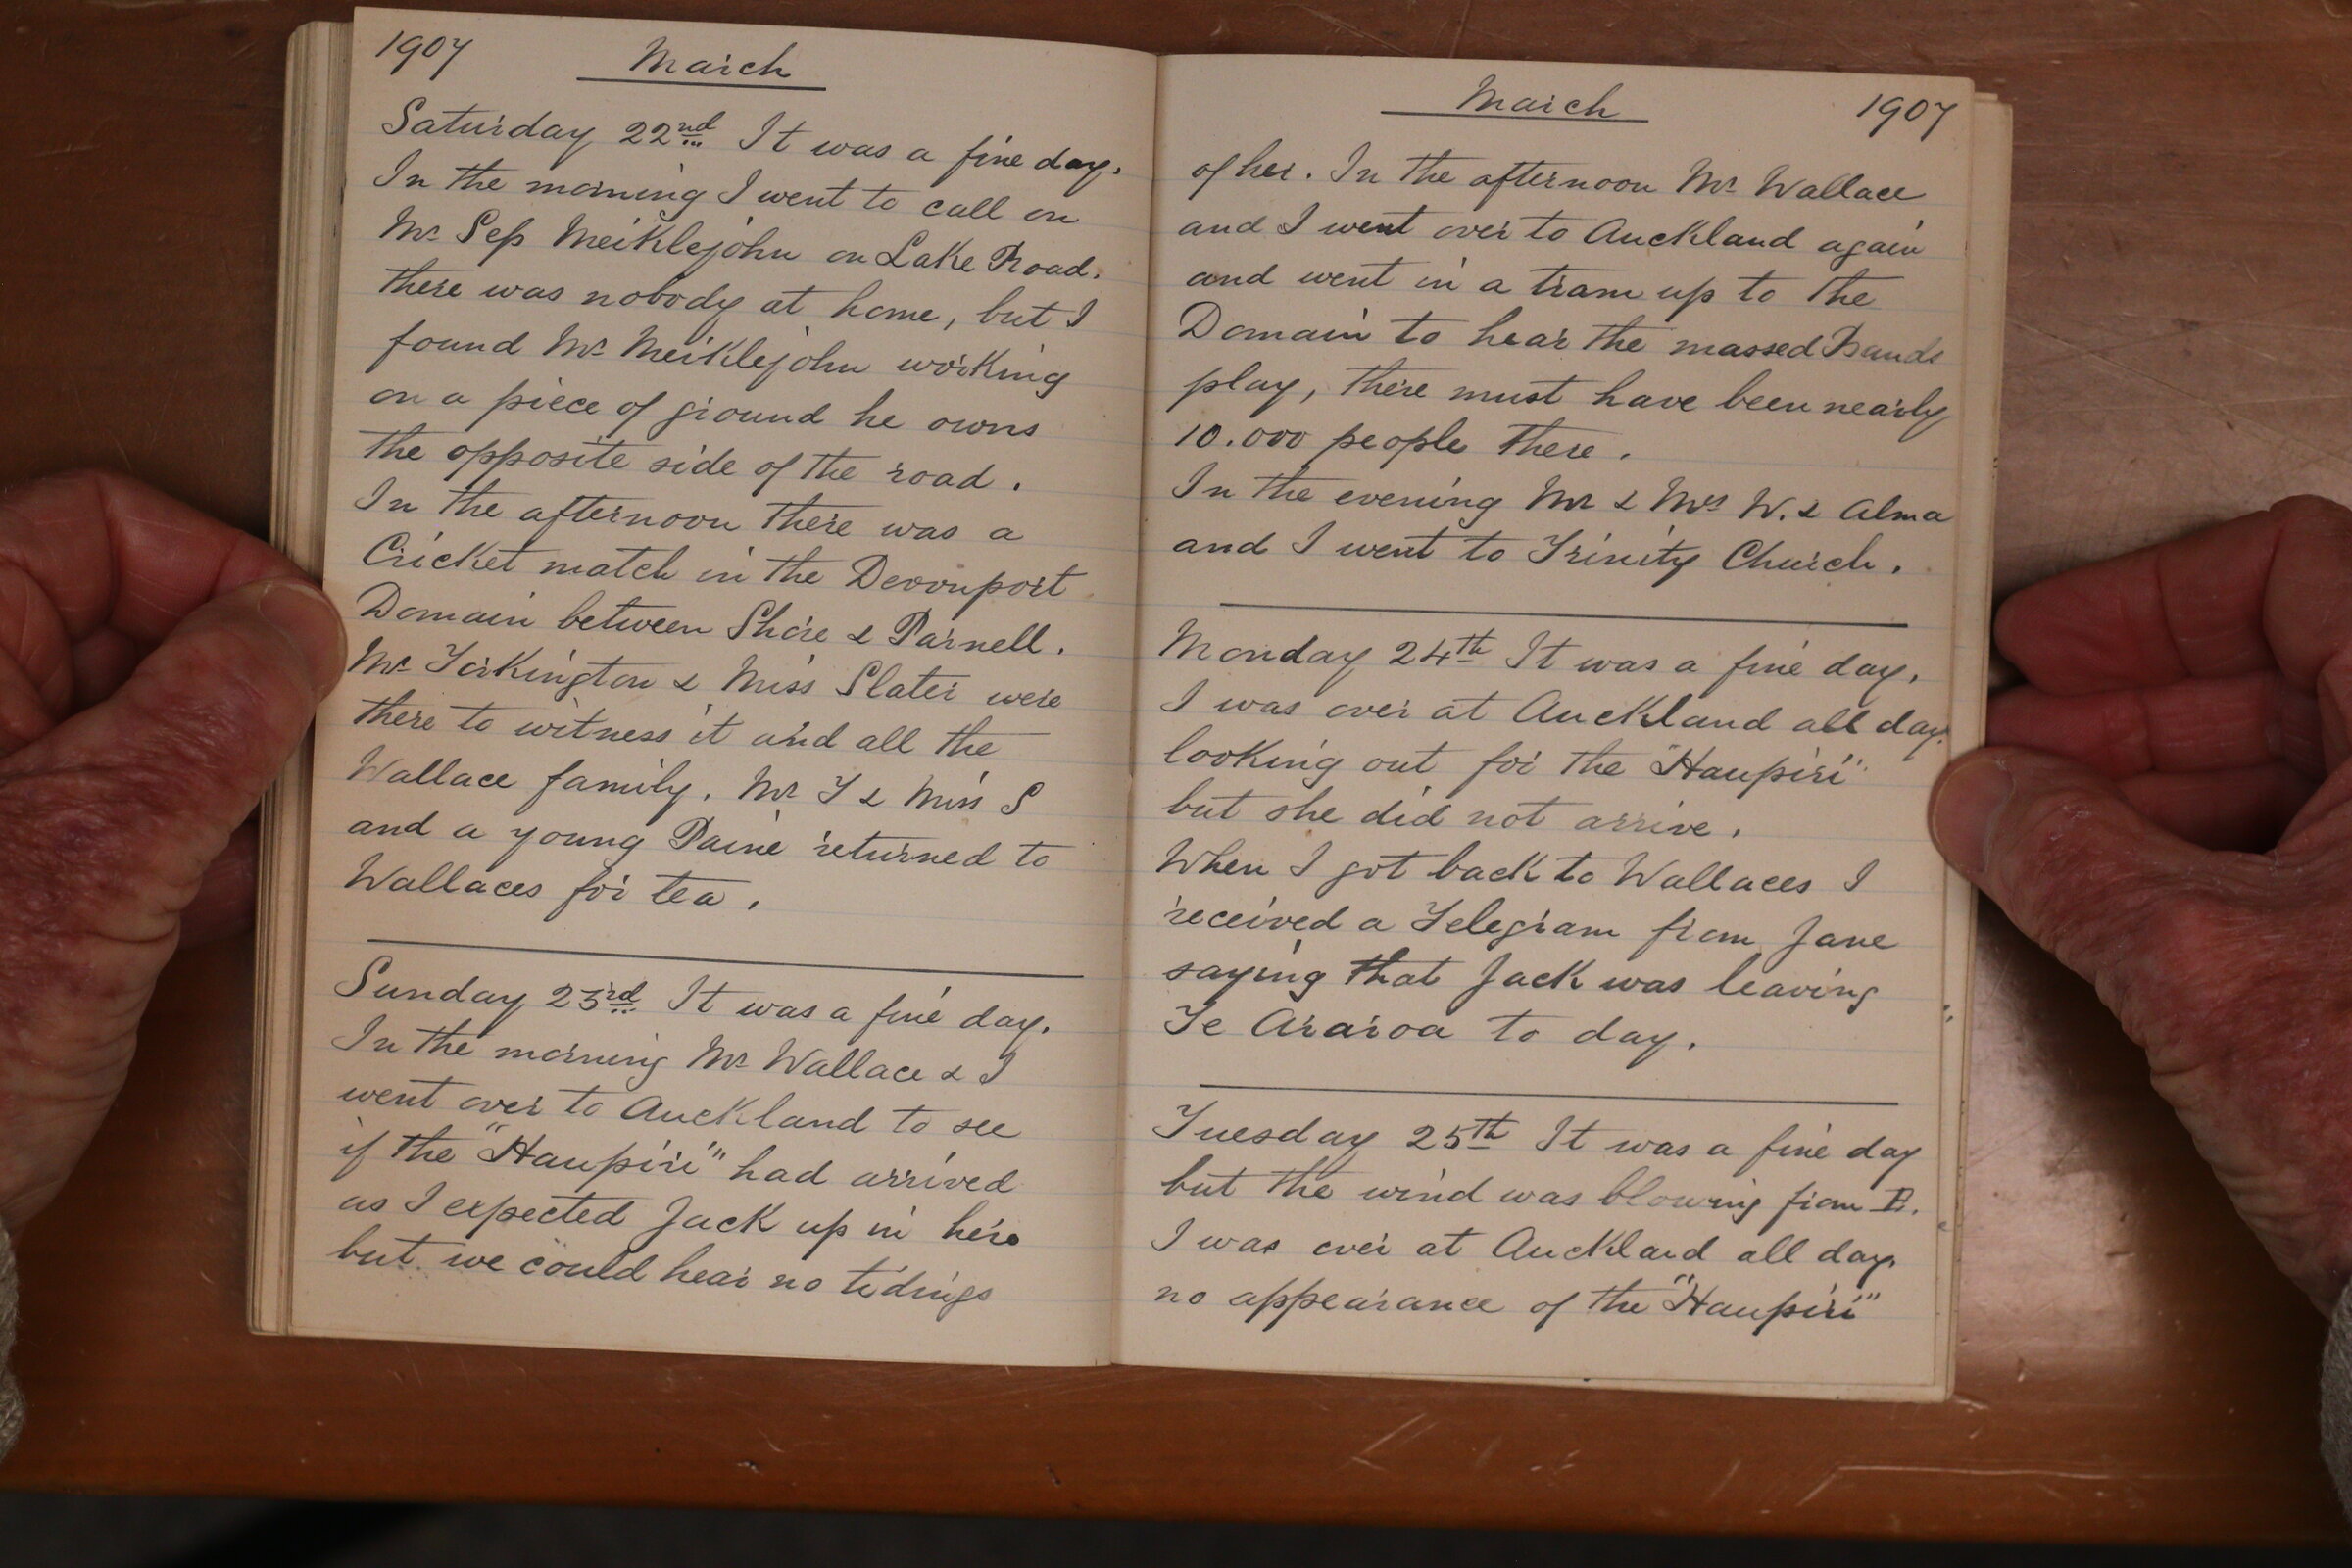 1907 March
Saturday 22nd It was a fine day.
In the morning I went to call on
Mr Sep Meiklejohn on Lake Road.
there was nobody at home, but I
found Mr Meiklejohn working
on a piece of ground he owns
the opposite side of the road.
In the afternoon there was a
Cricket match in the Devonport
Domain between Shore & Parnell.
Mr Torkington & Miss Slater were
there to witness it and all the
Wallace family. Mr T & Miss S
and a young Paine returned to
Wallaces for tea.
Sunday 23rd It was a fine day.
In the morning Mr Wallace & I
went over to Auckland to see
if the "Haupiri" had arrived
as I expected Jack up in her
but we could hear no tidings
March 1907
of her. In the afternoon Mr Wallace
and I went over to Auckland again
and went in a tram up to the
Domain to hear the massed Bands
play, there must have been nearly
10.000 people there.
In the evening Mr & Mrs W. & Alma
and I went to Trinity Church.
Monday 24th It was a fine day.
I was over at Auckland all day.
looking out for the "Haupiri"
but she did not arrive.
When I got back to Wallaces I
received a Telegram from Jane
saying that Jack was leaving
Te Araroa to day.
Tuesday 25th It was a fine day
but the wind was blowing from E.
I was over at Auckland all day.
no appearance of the "Haupiri"